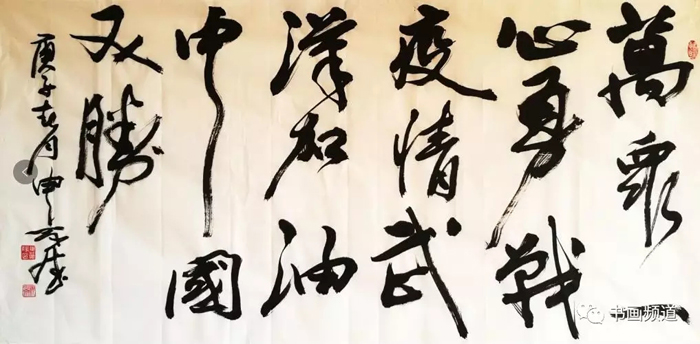 萬眾一
心勇戰
疫情武
漢加油
中國
必勝
庚子春月申万胜
书画频道